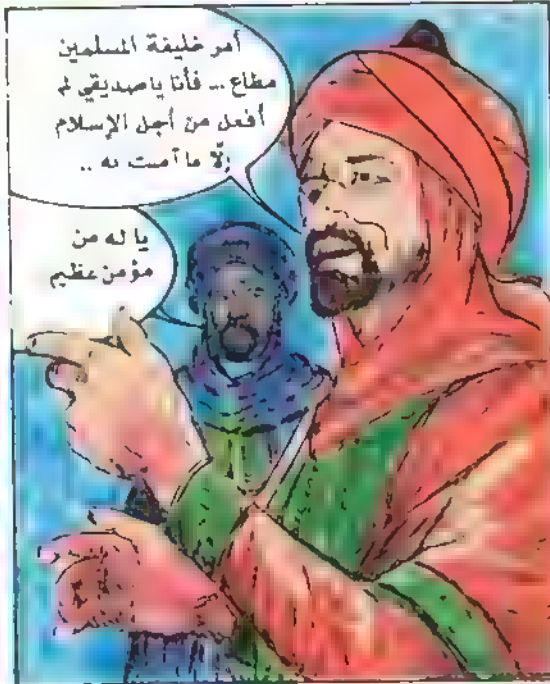 أمر خليفة المسلمين
مطاع .. فأنا يا صديقي لم
أفعل من أجل الإسلام
إلّا ما آمنت به ..
يا له من
مؤمن عظيم